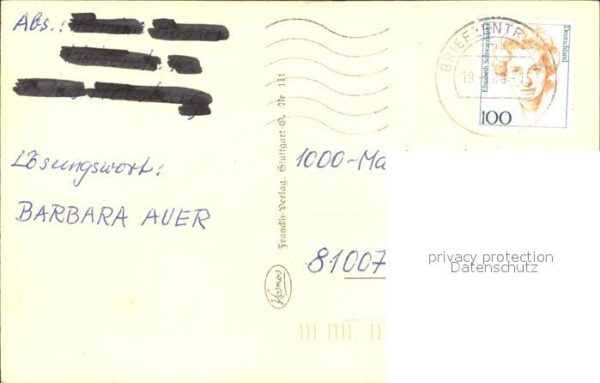 Abs.:
Lösungswort:
BARBARA AUER
Franckh-Verlag, Stuttgart-O. Nr 111
Kosmos
BRIEFZENTR
19.
Elisabeth Schwarzhaupt
Deutschland
100
1000-Ma
81007
privacy protection
Datenschutz